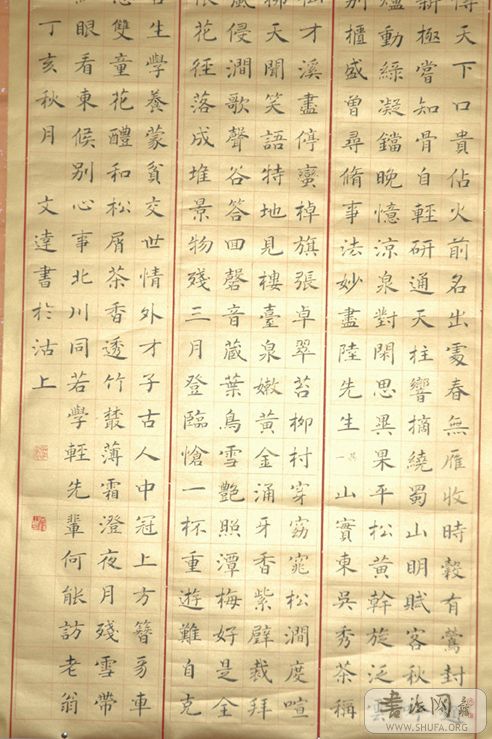 天下口貴佔火前名出處春無雁收時穀有鶯封
新極嘗知骨自輕研通天柱響摘繞蜀山明賦客秋
爐動綠凝鐺晚憶涼泉對閑思異果平松黃幹旋泛雲
別櫃盛曾尋脩事法妙盡陸先生 一其 山實東吳秀茶稱
才溪盡停蠻棹旗張卓翠苔柳村穿窈窕松澗度喧
天聞笑語特地見樓臺泉嫩黃金涌牙香紫壁裁拜
侵澗歌聲谷答回磬音藏葉鳥雪艷照潭梅好是全
花徑落成堆景物殘三月登臨愴一杯重遊難自克
生學養蒙貧交世情外才子古人中冠上方簪豸車
雙童花醴和松屑茶香透竹叢薄霜澄夜月殘雪帶
眼看東候別心事北川同若學輕先輩何能訪老翁
丁亥秋月 文達書於沽上
書法网
WWW.SHUFA.ORG